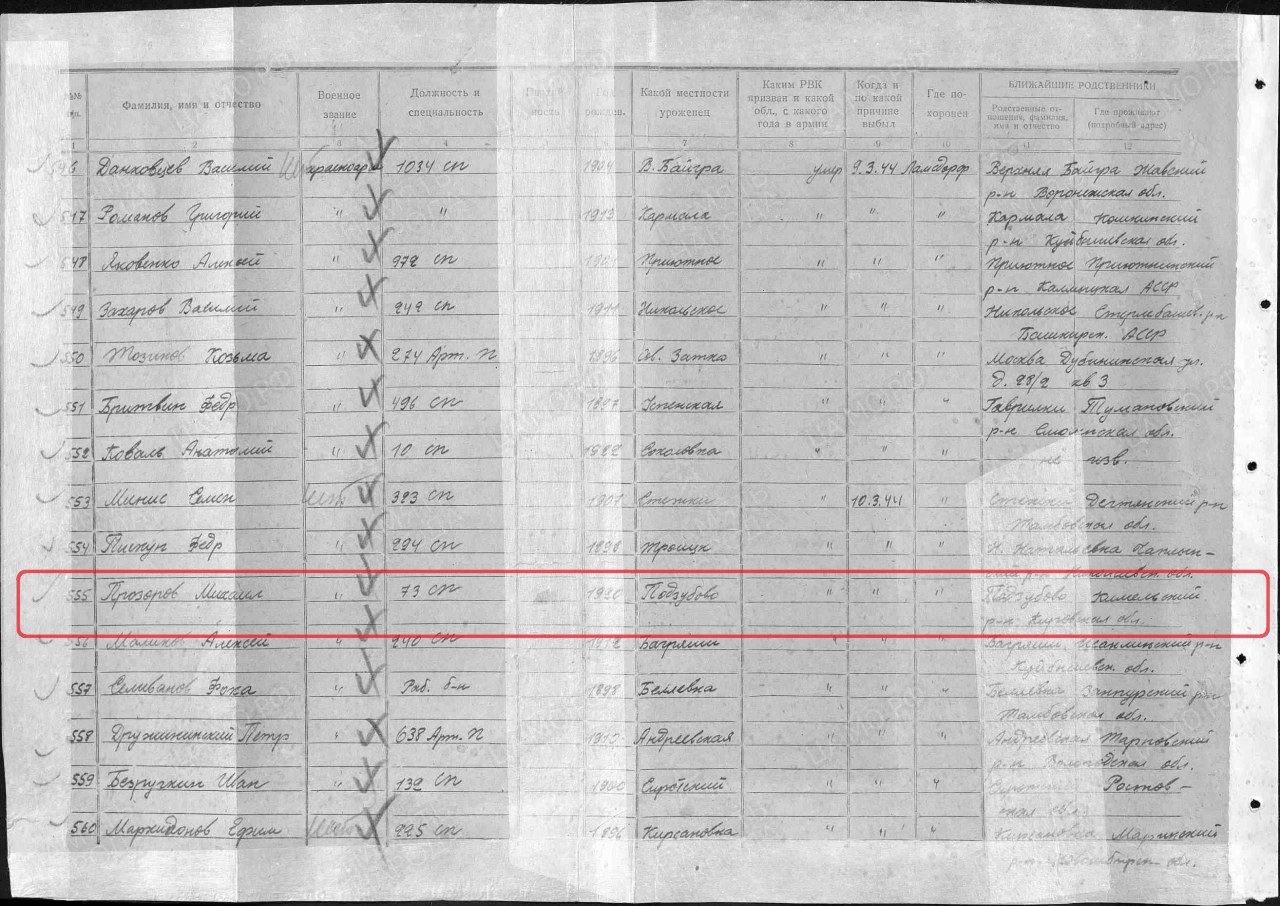 Фамилия, имя и отчество
Военное звание
Должность и специальность
Какой местности уроженец
Каким РВК призван и какой обл., с какого года в армии
Когда и по какой причине выбыл
Где похоронен
БЛИЖАЙШИЕ РОДСТВЕННИКИ
Родственные отношения, фамилия, имя и отчество
Где проживают (подробный адрес)
546 Данковцев Василий красноарм 1034 сп 1904 В. Байгра умер 9.3.44 Ламсдорф Верхняя Байгра
р-н Воронежская обл.
547 Романов Григорий " " 1913 Кармала " " " Кармала Кошкинский
р-н Куйбышевская обл.
548 Яковенко Алексей " 972 сп Приютное " " " Приютное Приютнинский
р-н Калмыцкая АССР
549 Захаров Василий " 242 сп 1911 Никольское " " " Никольское
Башкирск. АССР
550 Козьма " 274 Арт. П 1896 " " " Москва Дубининская ул.
д. 28/2 кв 3
551 Бритвин Федр " 496 сп 1897 Успенская " " " Гаврилки Тумановский
р-н Смоленская обл.
552 Коваль Анатолий " 10 сп Соколовка " " " не изв.
553 Минис Семен " 383 сп 1907 Стежки " 10.3.44 " Стежки
Тамбовская обл.
554 Пискун Федр " 294 сп 1898 Троицк " " " Н. Натальевка
555 Прозоров Михаил " 73 сп 1920 Подзубово " " " Подзубово
р-н Кировская обл.
556 Маликов Алексей " 240 сп Багряши " " " Багряши, Исаклинский р-н
Куйбышевск. обл.
557 Селиванов Фока " Раб. б-н 1898 Беляевка " " " Беляевка
Тамбовская обл.
558 Дружининский Петр " 638 Арт. П 1910 Андреевская " " " Андреевская Тарногский
р-н Вологодская обл.
559 Безручкин Иван " 132 сп 1920 Сиротский " " " Ростов-
ская обл.
560 Маркидонов Ефим " 225 сп 1896 Кирсановка " " " Мариинский
р-н Новосибирск. обл.